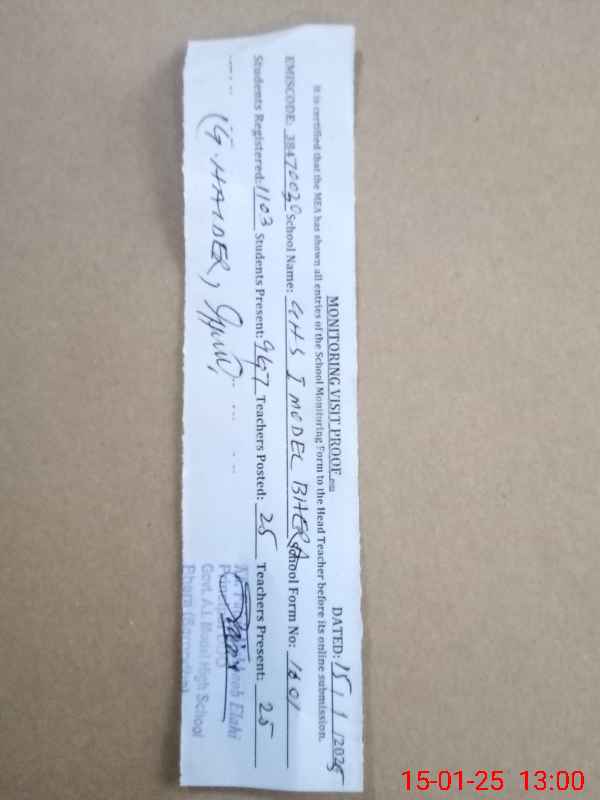 MONITORING VISIT PROOF
DATED: 15/1/2025
It is certified that the MEA has shown all entries of the School Monitoring Form to the Head Teacher before its online submission.
EMISCODE: 38470020 School Name: GHS I MODEL BHERA School Form No: 1801
Students Registered: 1103 Students Present: 967 Teachers Posted: 25 Teachers Present: 25
(G. HAIDER,
Elahi
Govt. A.I. Model High School
Bhera (Sargodha)
15-01-25 13:00